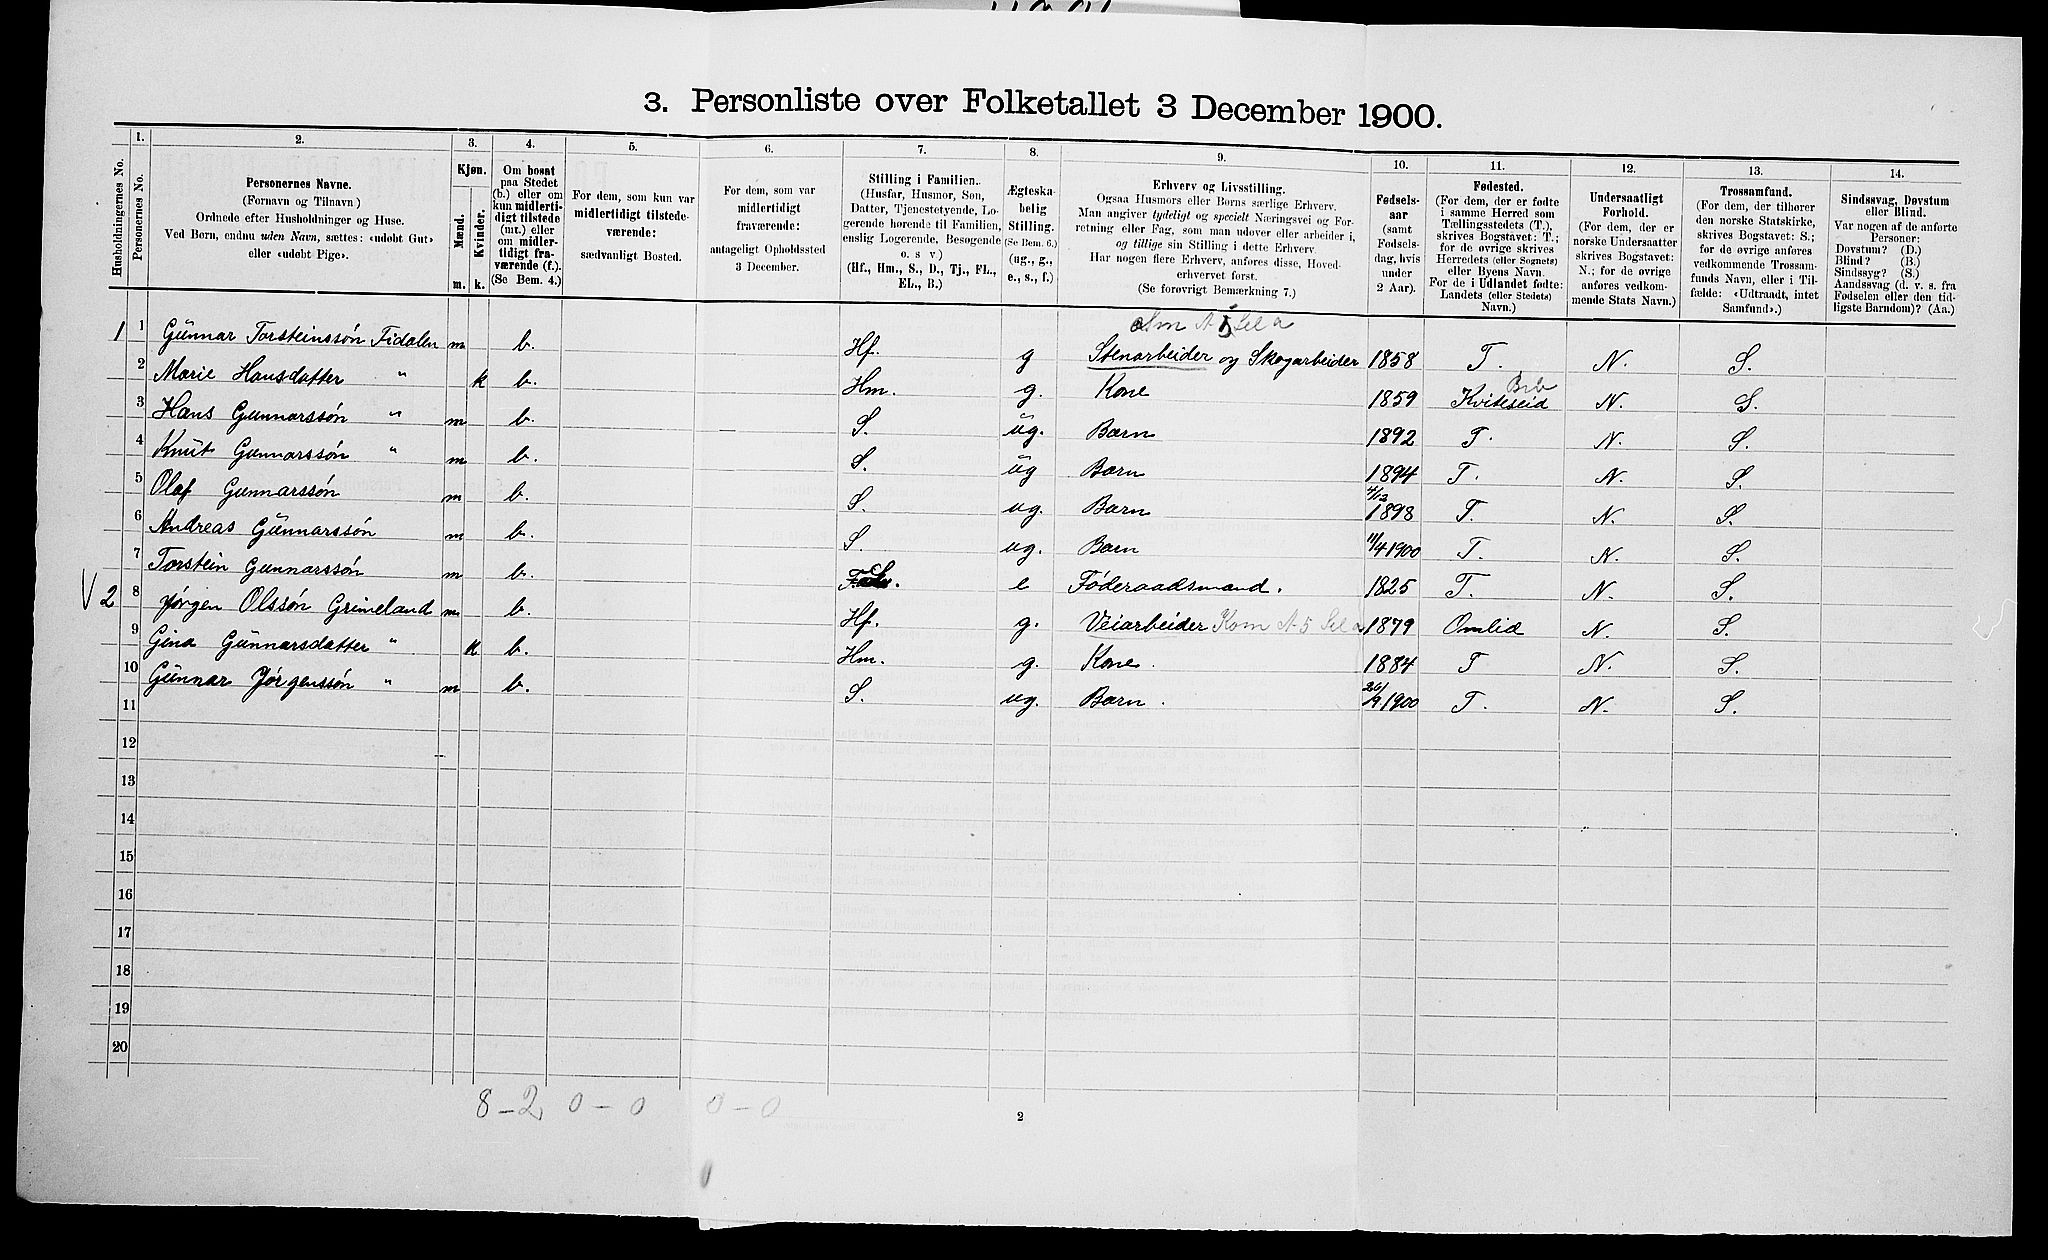 3. Personliste over Folketallet 3 December 1900.
Husholdningernes No.
1. Personernes No.
2.
Personernes Navne.
(Fornavn og Tilnavn.)
Ordnede efter Husholdninger og Huse.
Ved Børn, endnu uden Navn, sættes: «udøbt Gut»
eller «udøbt Pige».
3.
Kjøn.
Mænd. Kvinder.
m. k.
4.
Om bosat
paa Stedet
(b.) eller om
kun midlerti-
digt tilstede
(mt.) eller
om midler-
tidigt fra-
værende (f.).
(Se Bem. 4.)
5.
For dem, som kun var
midlertidigt tilstede-
værende:
sædvanligt Bosted.
6.
For dem, som var
midlertidigt
fraværende:
antageligt Opholdssted
3 December.
7.
Stilling i Familien.
(Husfar, Husmor, Søn,
Datter, Tjenestetyende, Lo-
gerende hørende til Familien,
enslig Logerende, Besøgende
o. s v.)
(Hf., Hm., S., D., Tj., FL.,
EL., B.)
8.
Ægteska-
belig
Stilling.
(Se Bem. 6.)
(ug., g.,
e., s., f.)
9.
Erhverv og Livsstilling.
Ogsaa Husmors eller Børns særlige Erhverv.
Man angiver tydeligt og specielt Næringsvei og For-
retning eller Fag, som man udøver eller arbeider i,
og tillige sin Stilling i dette Erhverv.
Har nogen flere Erhverv, anføres disse, Hoved-
erhvervet først.
(Se forøvrigt Bemærkning 7.)
10.
Fødsels-
aar
(samt
Fødsels-
dag, hvis
under
2 Aar).
11.
Fødested.
(For dem, der er fødte
i samme Herred som
Tællingsstedets (T.),
skrives Bogstavet: T.;
for de øvrige skrives
Herredets (eller Sognets)
eller Byens Navn.
For de i Udlandet fødte:
Landets (eller Stedets)
Navn.)
12.
Undersaatligt
Forhold.
(For dem, der er
norske Undersaatter
skrives Bogstavet:
N.; for de øvrige
anføres vedkom-
mende Stats Navn.)
13.
Trossamfund.
(For dem, der tilhører
den norske Statskirke,
skrives Bogstavet: S.;
for de øvrige anføres
vedkommende Trossam-
funds Navn, eller i Til-
fælde: «Udtraadt, intet
Samfund».)
14.
Sindssvag, Døvstum
eller Blind.
Var nogen af de anførte
Personer:
Døvstum? (D.)
Blind? (B.)
Sindssyg? (S.)
Aandssvag (d. v. s. fra
Fødselen eller den tid-
ligste Barndom)? (Aa.)
1 1 Gunnar Torsteinssøn Fidalen m b. Hf. g Stenarbeider og Skogarbeider 1858 T. N. S.
2 Marie Hansdatter " k b. Hm. g. Kone 1859 Kviteseid N. S.
3 Hans Gunnarssøn " m b. S. ug. Barn 1892 T. N. S.
4 Knut Gunnarssøn " m b. S. ug Barn 1894 T. N. S.
5 Olaf Gunnarssøn m b. S. ug. Barn 4/12 1898 T. N. S.
6 Andreas Gunnarssøn m b. S. ug. Barn 11/4 1900 T. N. S.
7 Torstein Gunnarssøn m b. e Føderaadsmand. 1825 T. N. S.
V 2 8 Jørgen Olssøn Grimeland m b. Hf. g. Veiarbeider Kom A 5 1879 Omlid N. S.
9 Gina Gunnarsdatter " k b. Hm. g. Kone. 1884 T N. S.
10 Gunnar Jørgenssøn " m b. S. ug. Barn. 26/9 1900 T. N. S.
11
12
13
14
15
16
17
18
19
20
8 - 2 0 - 0 0 - 0
2